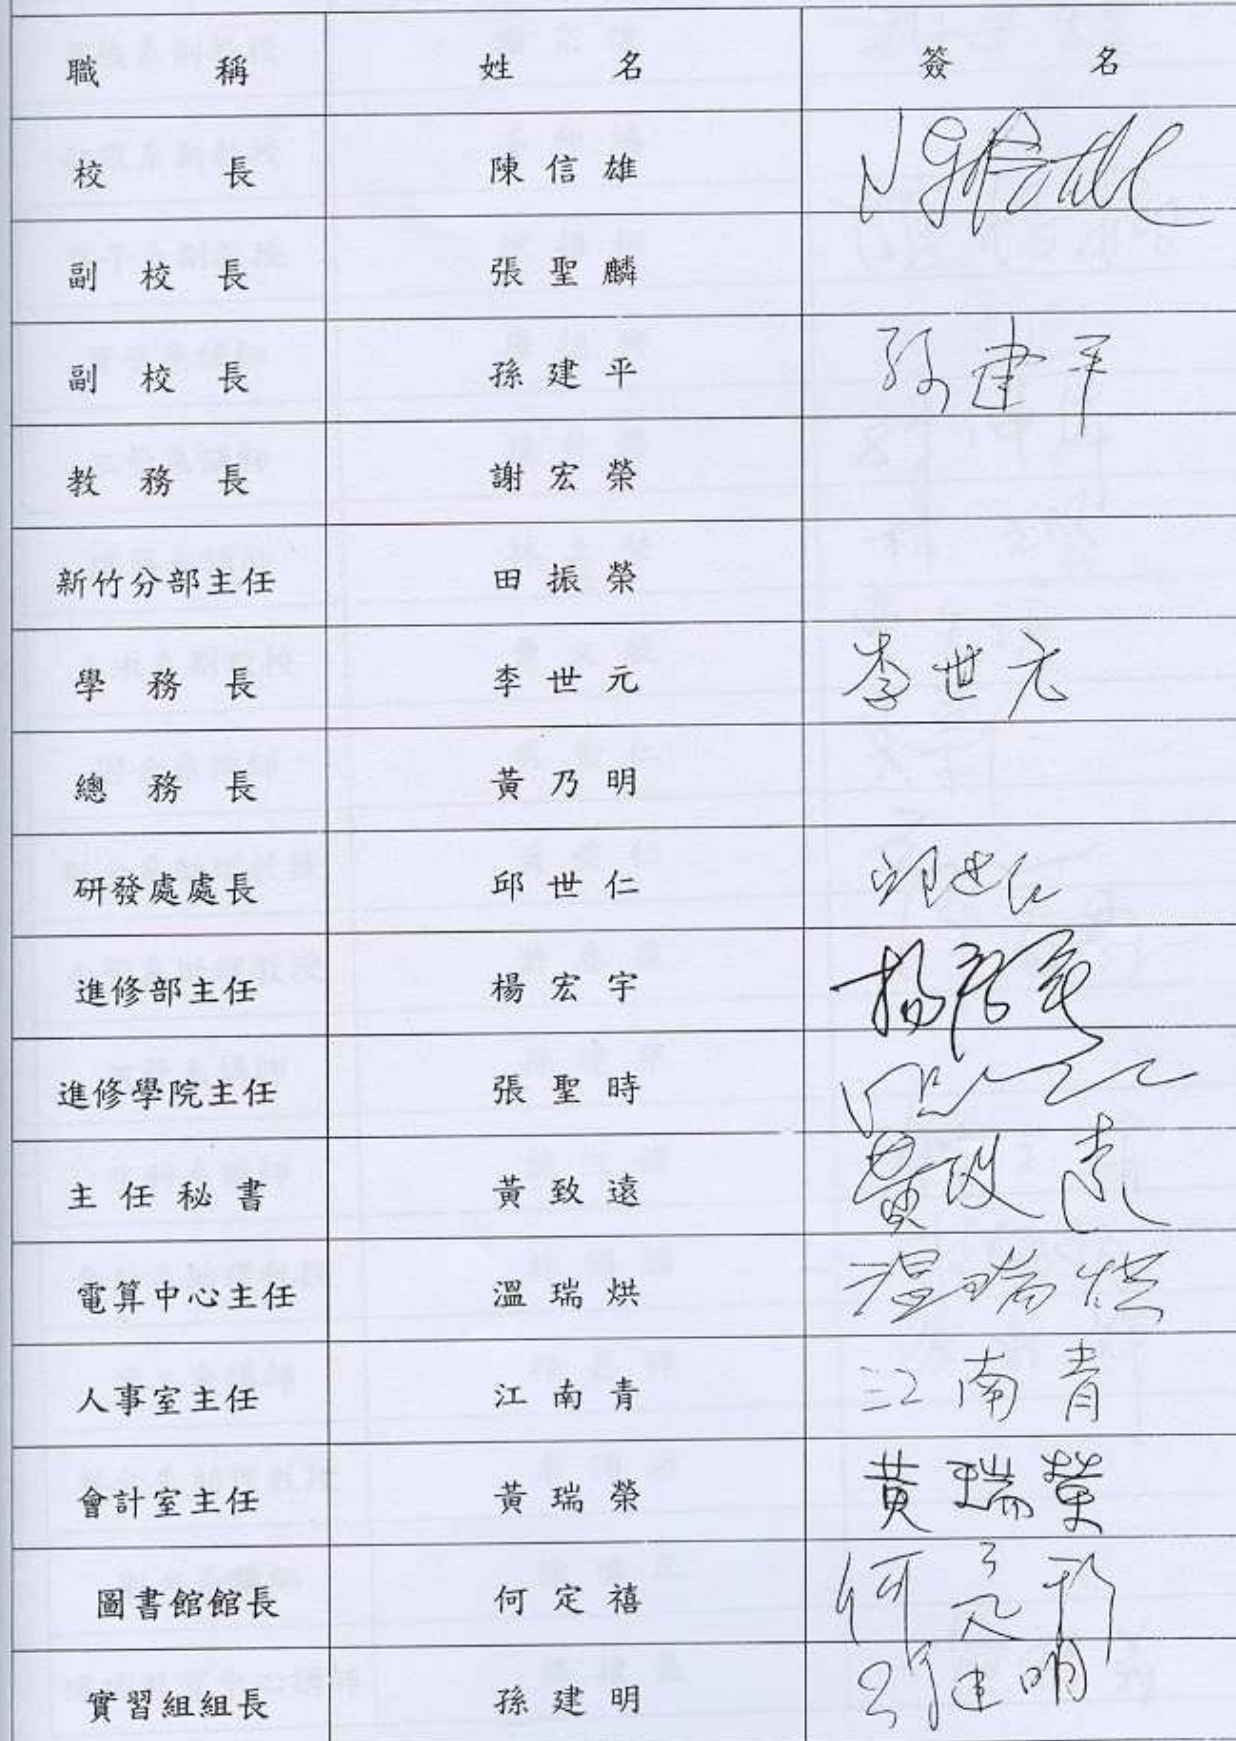 職稱 姓名 簽名
校長 陳信雄
副校長 張聖麟
副校長 孫建平 孫建平
教務長 謝宏榮
新竹分部主任 田振榮
學務長 李世元 李世元
總務長 黃乃明
研發處處長 邱世仁 邱世仁
進修部主任 楊宏宇 楊宏宇
進修學院主任 張聖時
主任秘書 黃致遠 黃致遠
電算中心主任 溫瑞烘 溫瑞烘
人事室主任 江南青 江南青
會計室主任 黃瑞榮 黃瑞榮
圖書館館長 何定禧 何
實習組組長 孫建明 孫建明